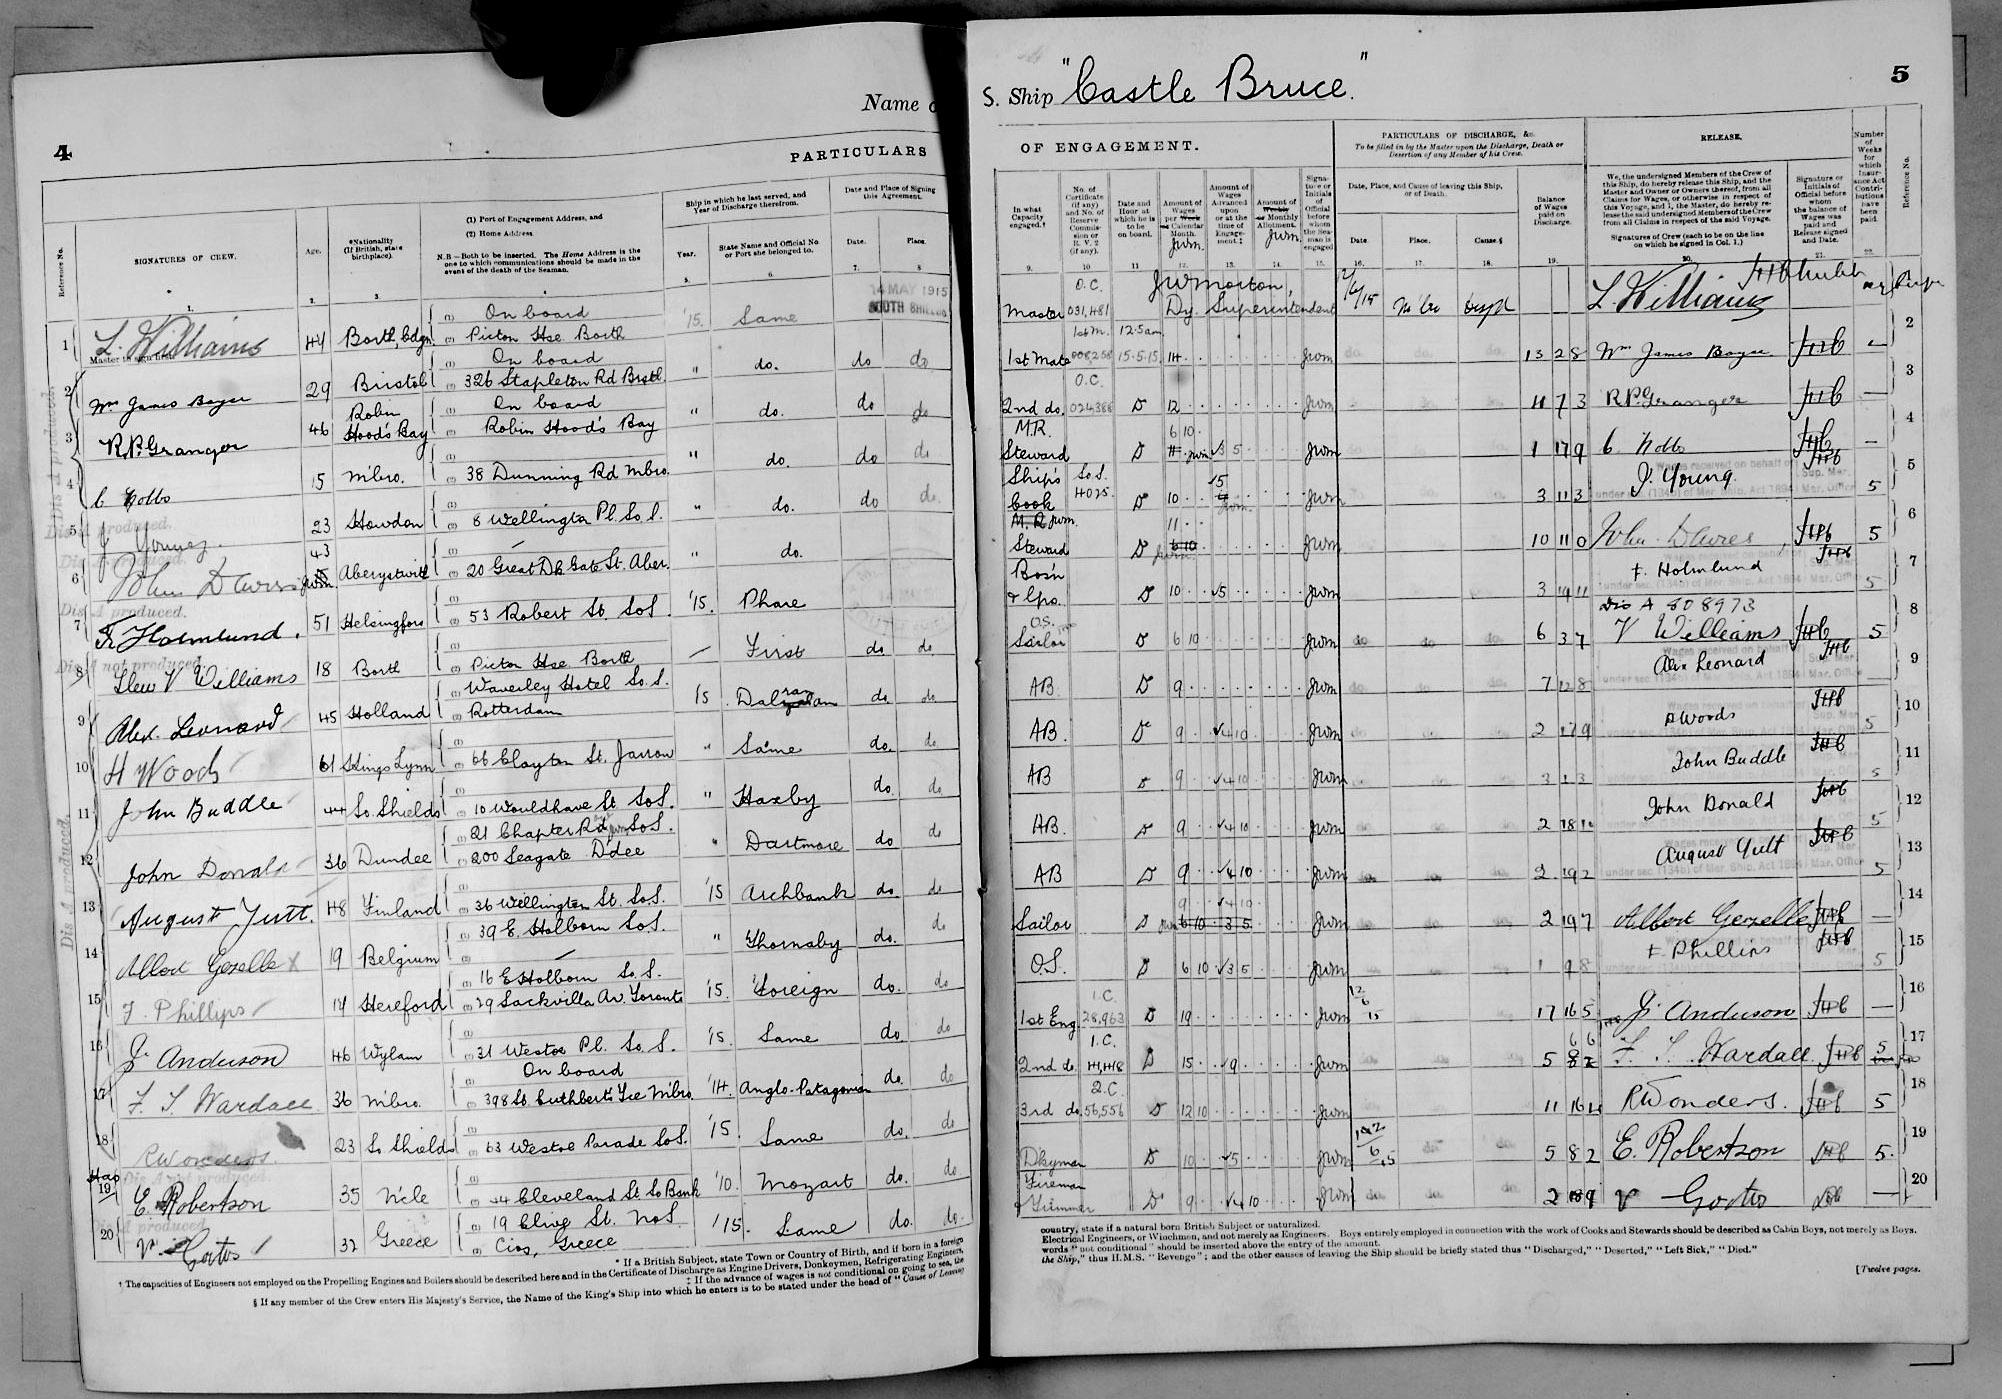 4
Name o
PARTICULARS
Reference No.
SIGNATURES OF CREW.
Age.
*Nationality
(If British, state
birthplace).
(1) Port of Engagement Address, and
(2) Home Address.
N.B.—Both to be inserted. The Home Address is the
one to which communications should be made in the
event of the death of the Seaman.
Ship in which he last served, and
Year of Discharge therefrom.
Year.
State Name and Official No.
or Port she belonged to.
Date and Place of Signing
this Agreement.
Date.
Place.
1. 2. 3. 5. 6. 7. 8
14 MAY 1915
SOUTH SHIELDS
On board
1 L. Williams 44 Borth, Cdgn Picton Hse Borth '15. Same
Master to sign first
On board
2 Wm James Boyer 29 Bristol 326 Stapleton Rd Brstl " do. do do
On board
3 R.P. Granger 46 Robin Hood's Bay Robin Hood's Bay " do. do do
4 C Nobbs 15 M'bro. 38 Dunning Rd Mbro. " do. do do
5 J Young 23 Howdon 8 Wellington Pl. So. S. " do. do do.
6 John Davies 43 Aberystwith 20 Great Dk Gate St. Aber. " do.
7 F. Holmlund. 51 Helsingfors 53 Robert St. So S. '15. Phare
8 Llew V Williams 18 Borth Picton Hse Borth First do. do
Waverley Hotel So. S.
9 Alex. Leonard 45 Holland Rotterdam 15 do. do.
10 H Woods 61 Kings Lynn 66 Clayton St. Jarrow " Same do. do
11 John Buddle 44 So. Shields 10 Wouldhave St. So S. " Haxby do. do
21 Chapter Rd So S.
12 John Donald 36 Dundee 200 Seagate D'dee " Dartmore do do
13 August Jutt. 48 Finland 36 Wellington St. So S. '15 Archbank do. do
39 E. Holborn So S.
14 Albert Gezelle X 19 Belgium " Thornaby do. do
16 E Holborn So. S.
15 F. Phillips 14 Hereford 29 Sackville Av. Toronto '15. Foreign do. do
16 J. Anderson 46 Wylam 31 Westoe Pl. So. S. '15. Same do. do
On board
17 F. S Wardale 36 M'bro. 398 St. Cuthberts Tce M'bro. '14. Anglo-Patagonian do. do
18 R Wonders. 23 So Shields 63 Westoe Parade So S. '15. Same do. do
19 E Robertson 35 N'cle 44 Cleveland St So Bank '10. Mozart do. do
19 Clive St. No S.
20 V. Goatos 32 Greece Cios, Greece '15. Same do. do.
Dis A produced.
Dis A not produced.
* If a British Subject, state Town or Country of Birth, and if born in a foreign
† The capacities of Engineers not employed on the Propelling Engines and Boilers should be described here and in the Certificate of Discharge as Engine Drivers, Donkeymen, Refrigerating Engineers,
‡ If the advance of wages is not conditional on going to sea, the
§ If any member of the Crew enters His Majesty's Service, the Name of the King's Ship into which he enters is to be stated under the head of "Cause of Leaving
S. Ship "Castle Bruce."
5
OF ENGAGEMENT.
In what
Capacity
engaged.†
No. of
Certificate
(if any)
and No. of
Reserve
Commis-
sion or
R.V. 2
(if any).
Date and
Hour at
which he is
to be
on board.
Amount of
Wages
per Week
or Calendar
Month.
Jwm.
Amount of
Wages
Advanced
upon
or at the
time of
Engage-
ment.‡
Amount of
Weekly
or Monthly
Allotment.
Jwm.
Signa-
ture or
Initials
of
Official
before
whom
the Sea-
man is
engaged
PARTICULARS OF DISCHARGE, &c.
To be filled in by the Master upon the Discharge, Death or
Desertion of any Member of his Crew.
Date, Place, and Cause of leaving this Ship,
or of Death.
Date. Place. Cause.§
Balance
of Wages
paid on
Discharge.
RELEASE.
We, the undersigned Members of the Crew of
this Ship, do hereby release this Ship, and the
Master and Owner or Owners thereof, from all
Claims for Wages, or otherwise in respect of
this Voyage, and I, the Master, do hereby re-
lease the said undersigned Members of the Crew
from all Claims in respect of the said Voyage.
Signatures of Crew (each to be on the line
on which he signed in Col. 1.)
Signature or
Initials of
Official before
whom
the balance of
Wages was
paid and
Release signed
and Date.
Number
of
Weeks
for
which
Insur-
ance Act
Contri-
butions
have
been
paid.
Reference No.
9. 10 11 12. 13. 14. 15. 16. 17. 18. 19. 20. 21.
O.C. Jwmorton,
Master 031,481 Dy. Superintendent L. Williams
1st M. 12.5am 2
1st Mate 008258 15.5.15 14 Jwm do. 13 2 8 Wm James Boyer
O.C. 3
2nd do. 024388 D 12 Jwm 4 7 3 R.P. Granger —
M.R. 6 10 4
Steward D Jwm 3 5 Jwm 1 17 9 C. Nobbs —
Ship's So. S. 5 5
Cook 4025. D 10 Jwm 3 11 3 J. Young 5
M.R Jwm. 11 6
Steward D 6 10 Jwm 10 11 0 John Davies, 5
Bos'n 7
& Lps. D 10 5 Jwm F. Holmlund 5
O.S. Dis A 808973 8
Sailor D 6 10 Jwm do do do 6 3 7 V Williams 5
9
AB D 9 Jwm do 7 12 8 Alex Leonard —
10
AB. D 9 4 10 Jwm do. 2 17 9 H Woods 5
11
AB D 9 4 10 Jwm do. John Buddle 5
12
AB. D 9 4 10 Jwm do. John Donald 5
13
AB D 9 4 10 Jwm do. 2 19 2 August Jutt 5
9 4 10 14
Sailor D 6 10 3 5 Jwm 2 19 7 Albert Gezelle —
15
O.S. D 6 10 3 5 Jwm F Phillips 5
1.C. 12/6/15 16
1st Eng. 28,963 D 19 Jwm 17 16 5 J. Anderson —
1.C. 17
2nd do. D 15 9 Jwm do. F. S. Wardale 5
2.C. 18
3rd do. 56,556 D 12 10 Jwm R Wonders. 5
19
Dkyman D 10 5 Jwm 5 8 2 E. Robertson 5.
Fireman 20
& Trimmer D 9 4 10 Jwm do. V Goatos —
country, state if a natural born British Subject or naturalized.
Electrical Engineers, or Winchmen, and not merely as Engineers. Boys entirely employed in connection with the work of Cooks and Stewards should be described as Cabin Boys, not merely as Boys.
words "not conditional" should be inserted above the entry of the amount.
the Ship," thus H.M.S. "Revenge"; and the other causes of leaving the Ship should be briefly stated thus "Discharged," "Deserted," "Left Sick," "Died."
[Twelve pages.